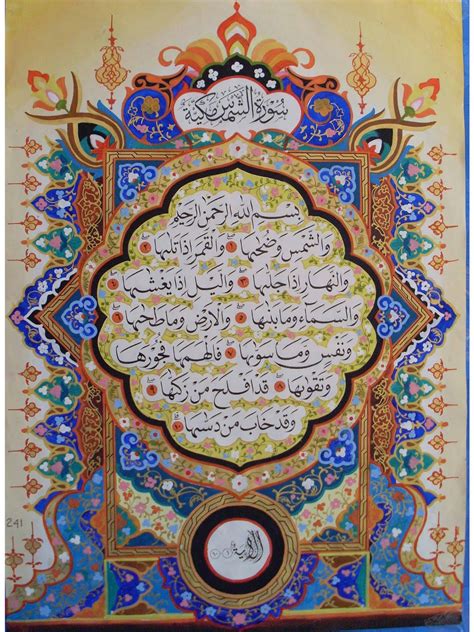 سورة الشمس مكية
بسم الله الرحمن الرحيم
والشمس وضحىها ١ والقمر إذا تلىها ٢
والنهار إذا جلىها ٣ والىل إذا يغشىها ٤
والسمآء وما بنىها ٥ والأرض وما طحىها ٦
ونفس وما سوىها ٧ فألهمها فجورها
وتقوىها ٨ قد أفلح من زكىها ٩
وقد خاب من دسىها ١٠
الاية
241